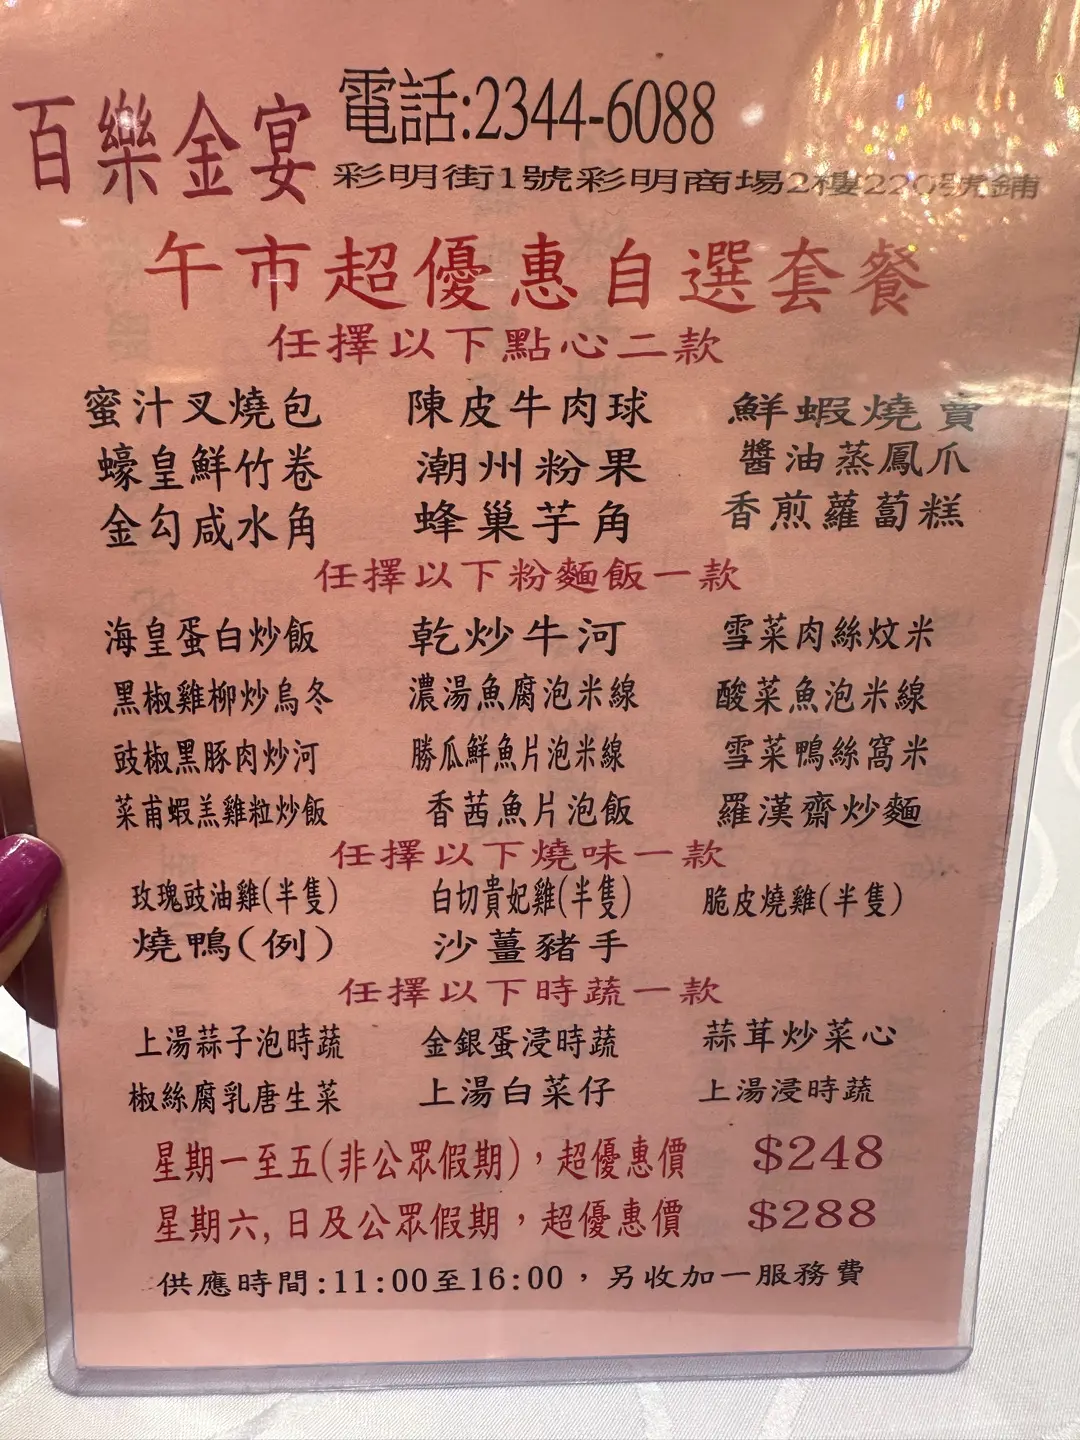 百樂金宴 電話:2344-6088
彩明街1號彩明商場2樓220號鋪
午市超優惠自選套餐
任擇以下點心二款
蜜汁叉燒包 陳皮牛肉球 鮮蝦燒賣
蠔皇鮮竹卷 潮州粉果 醬油蒸鳳爪
金勾咸水角 蜂巢芋角 香煎蘿蔔糕
任擇以下粉麵飯一款
海皇蛋白炒飯 乾炒牛河 雪菜肉絲炆米
黑椒雞柳炒烏冬 濃湯魚腐泡米線 酸菜魚泡米線
豉椒黑豚肉炒河 勝瓜鮮魚片泡米線 雪菜鴨絲窩米
菜甫蝦羔雞粒炒飯 香茜魚片泡飯 羅漢齋炒麵
任擇以下燒味一款
玫瑰豉油雞(半隻) 白切貴妃雞(半隻) 脆皮燒雞(半隻)
燒鴨(例) 沙薑豬手
任擇以下時蔬一款
上湯蒜子泡時蔬 金銀蛋浸時蔬 蒜茸炒菜心
椒絲腐乳唐生菜 上湯白菜仔 上湯浸時蔬
星期一至五(非公眾假期)，超優惠價 $248
星期六,日及公眾假期，超優惠價 $288
供應時間:11:00至16:00，另收加一服務費